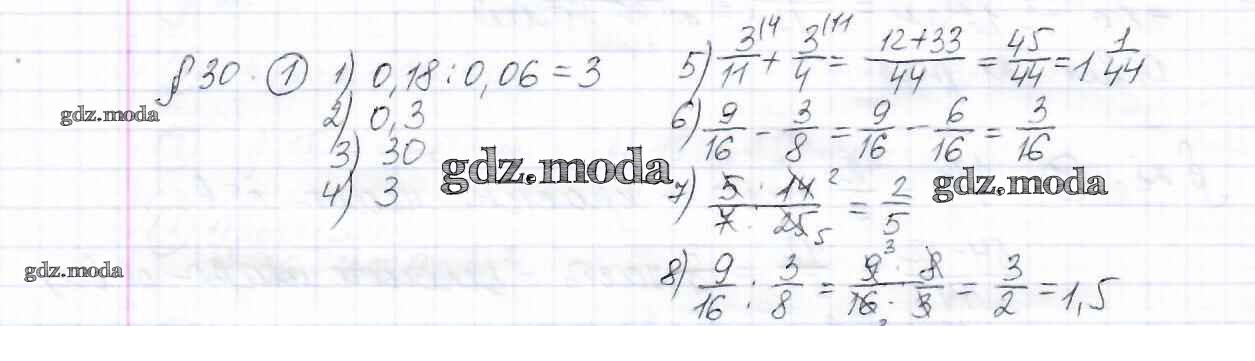 § 30. ① 1) 0,18 : 0,06 = 3
2) 0,3
3) 30
4) 3
5) 3/11 (4 + 3/4 (11 = 12+33/44 = 45/44 = 1 1/44
6) 9/16 - 3/8 = 9/16 - 6/16 = 3/16
7) 5 · 14 2 / 7 · 25 5 = 2/5
8) 9/16 : 3/8 = 9 3 · 8 / 16 2 · 3 = 3/2 = 1,5
gdz.moda
gdz.moda
gdz.moda
gdz.moda